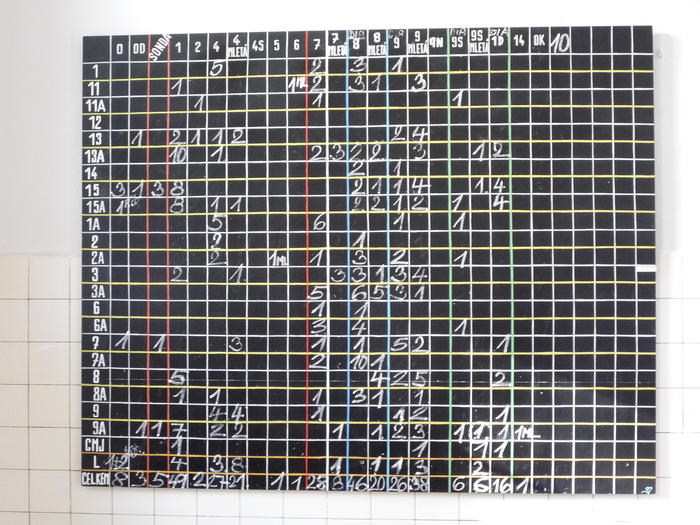 0 0D SONDA 1 2 4 4 MLETÁ 4S 5 6 7 7 MLETÁ DIA 8 8 MLETÁ DIA 9 9 MLETÁ 9N DIA 9S 9S MLETÁ DIA 10 14 OK 10
1 5 2 3 1
11 1 1ML 2 3 1 3
11A 1 1 1
12
13 1 2 1 1 2 2 4
13A 10 1 2 3 2 2 3 1 2
14 2 1
15 3 1 3 8 2 1 1 4 1 4
15A 1 8 1 1 2 2 1 2 1 4
1A 5 6 1 1
2 2 1
2A 2 1ML 1 3 2 1
3 2 1 3 3 1 3 4
3A 5 6 5 3 1
6 1 1
6A 3 4 1
7 1 1 3 1 1 5 2 1
7A 2 10 1
8 5 4 2 5 2
8A 1 1 1 3 1 1
9 4 4 1 1 2 1
9A 1 1 7 2 2 1 1 2 3 1 1 1 1ML
CMJ 1 1 1 1
L 1+2 4 3 8 1 1 1 3 2
CELKEM 8 3 5 49 2 27 21 1 1 25 8 46 20 26 38 6 6 16 1